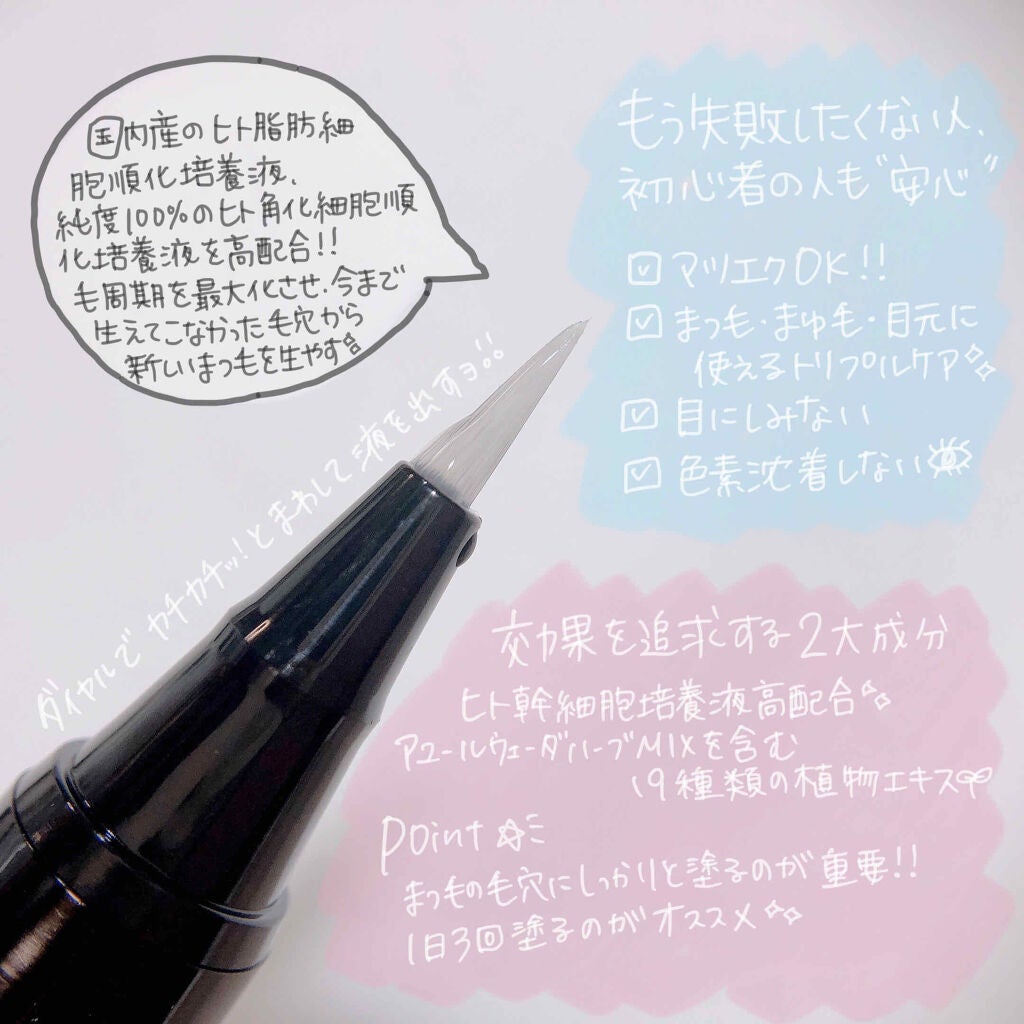 国内産のヒト脂肪細
胞順化培養液、
純度100%のヒト角化細胞順
化培養液を高配合!!
毛周期を最大化させ、今まで
生えてこなかった毛穴から
新しいまつ毛を生やす
ダイヤルでカチカチッ!とまわして液を出すヨ!!
もう失敗したくない人、
初心者の人も"安心"
☑マツエクOK!!
☑まつ毛・まゆ毛・目元に
使えるトリプルケア
☑目にしみない
☑色素沈着しない
効果を追求する2大成分
ヒト幹細胞培養液高配合
アユールヴェーダハーブMIXを含む
19種類の植物エキス
Point
まつ毛の毛穴にしっかりと塗るのが重要!!
1日3回塗るのがオススメ